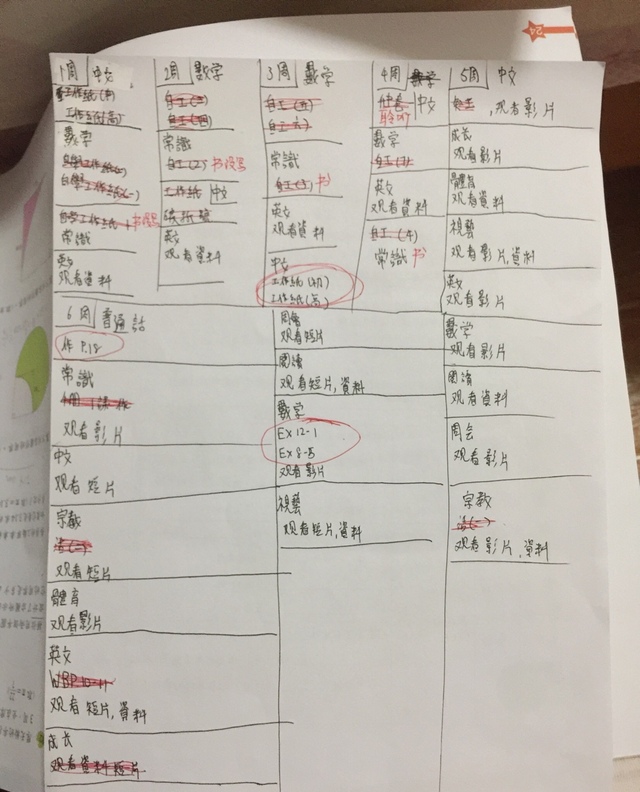 24
1周 中文
工作紙
数学
自學工作紙
自學工作紙
常識
英文
观看資料
2周 数学
自工
自工
常識
自工(2) 书没写
工作紙 中文
英文
观看資料
3周 數学
自工
自工
常識
自工 书
英文
观看資料
中文
工作紙(初)
工作紙(高)
4周 数学
中文
聆听
數学
自工
英文
观看資料
自工(4)
常識 书
5周 中文
自工,观看影片
成长
观看影片
體育
观看資料
視藝
观看影片,資料
英文
观看影片
數学
观看影片
閱讀
观看資料
周会
观看影片
宗教
观看影片,資料
6周 普通話
作 P.18
常識
观看影片
中文
观看短片
宗教
观看短片
體育
观看影片
英文
观看短片,資料
成长
观看資料短片
周會
观看短片
閱讀
观看短片,資料
數学
Ex 12-1
Ex 8-5
观看影片
視藝
观看短片,資料